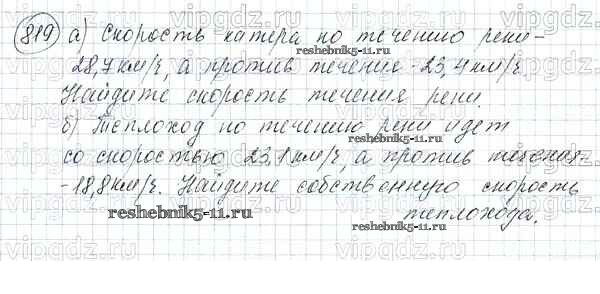 819 а) Скорость катера по течению реки -
28,7 км/ч, а против течения - 23,4 км/ч.
Найдите скорость течения реки.
б) Теплоход по течению реки идет
со скоростью 23,1 км/ч, а против течения -
- 18,8 км/ч. Найдите собственную скорость
теплохода.
reshebnik5-11.ru
reshebnik5-11.ru
reshebnik5-11.ru
reshebnik5-11.ru
vipgdz.ru